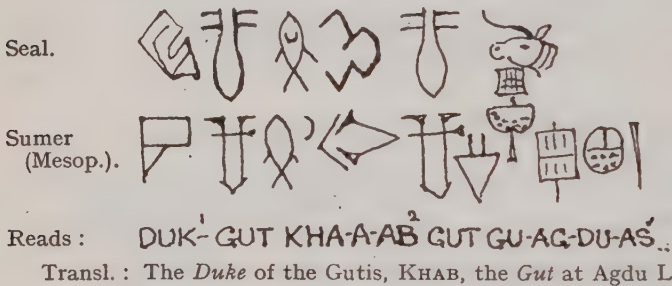 Seal.
Sumer
(Mesop.).
Reads : DUK-¹ GUT KHA-A-AB² GUT GU-AG-DU-AŠ..
Transl. : The Duke of the Gutis, KHAB, the Gut at Agdu L